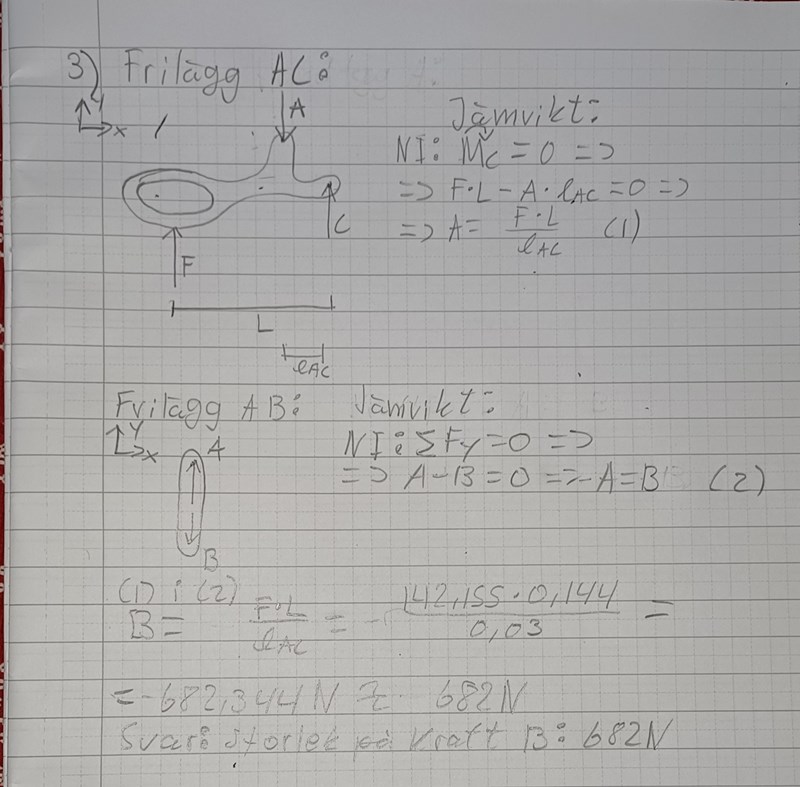 3) Frilägg AC:
Y
x
A
Jämvikt:
NI: M̌c = 0 =>
=> F·L - A·lAC = 0 =>
=> A = F·L / lAC (1)
C
F
L
lAC
Frilägg AB: Jämvikt:
Y
x
A
NI: ΣFy = 0 =>
=> A - B = 0 => A = B (2)
B
(1) i (2)
B = F·L / lAC = 142,155·0,144 / 0,03 =
= -682,344 N ≈ 682N
Svar: Storlek på Kraft B: 682N